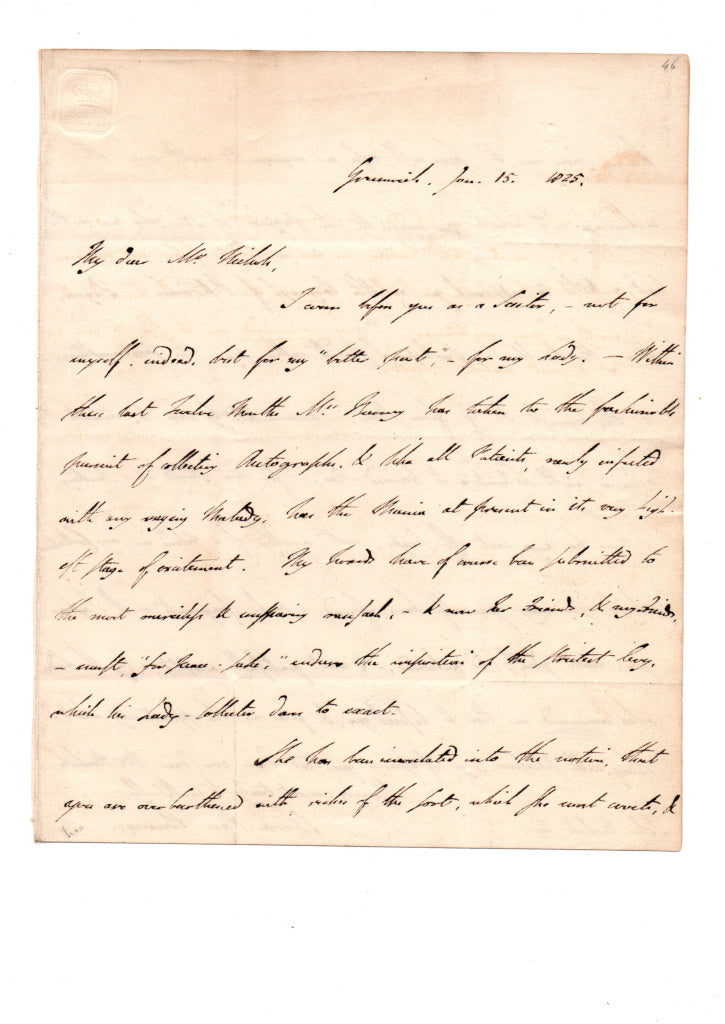 46
Greenwich. Jan. 15. 1825.
My dear Mr. Nichols,
I come before you as a Suitor, – not for
myself, indeed, but for my "better part", – for my Lady. – Within
these last Twelve Months Mrs. Burney has taken to the fashionable
pursuit of collecting Autographs. & like all Patients, newly infected
with any raging Malady, has the Mania at present in its very high-
est stage of excitement. My hoards have of course been submitted to
the most merciless & unsparing ransack, – & now her Friends, & my Friends,
– must, "for peace-sake," endure the imposition of the strictest levy,
which his Lady-Collector dares to exact.
She has been inoculated into the notion, that
you are overburthened with riches of the sort, which she most covets, &